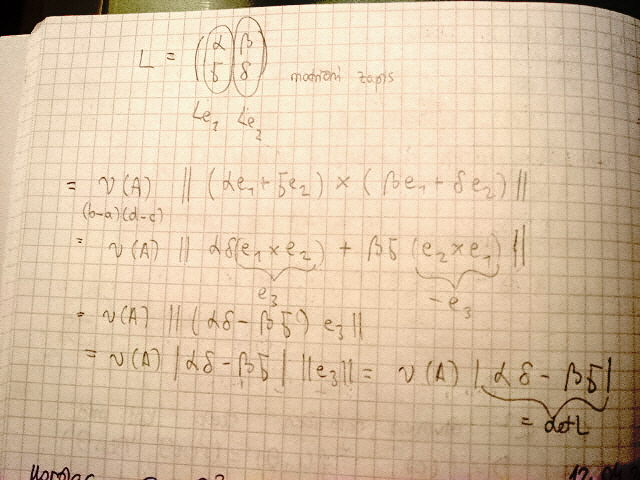 L = (α β
ƃ δ) matrični zapis
Le₁ Le₂
= ν(A) ‖ (αe₁ + ƃe₂) × (βe₁ + δe₂) ‖
(b-a)(d-c)
= ν(A) ‖ αδ(e₁×e₂) + βƃ (e₂×e₁) ‖
e₃ -e₃
= ν(A) ‖ (αδ - βƃ) e₃ ‖
= ν(A) |αδ - βƃ| ‖e₃‖ = ν(A) |αδ - βƃ|
= det L